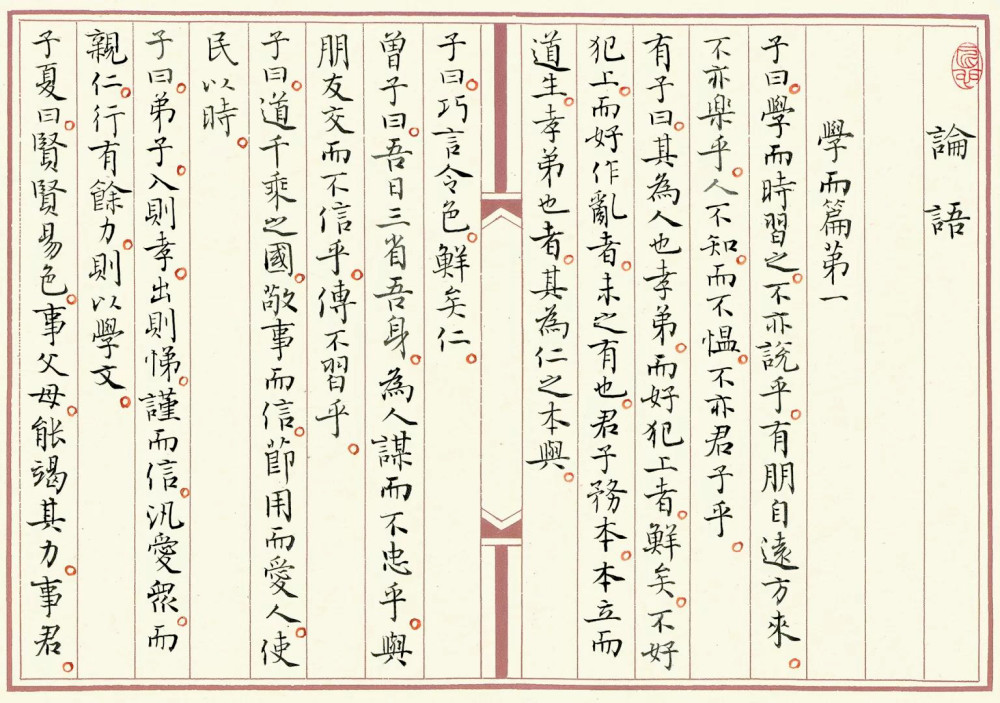 論語
學而篇第一
子曰。學而時習之。不亦說乎。有朋自遠方來。
不亦楽乎。人不知。而不愠。不亦君子乎。
有子曰。其為人也孝弟。而好犯上者。鮮矣。不好
犯上。而好作亂者。未之有也。君子務本。本立而
道生。孝弟也者。其為仁之本與。
子曰。巧言令色。鮮矣仁。
曽子曰。吾日三省吾身。為人謀而不忠乎。與
朋友交而不信乎。傳不習乎。
子曰。道千乘之國。敬事而信。節用而愛人。使
民以時。
子曰。弟子。入則孝。出則悌。謹而信。汎愛眾。而
親仁。行有餘力。則以學文。
子夏曰。賢賢易色。事父母。能竭其力。事君。